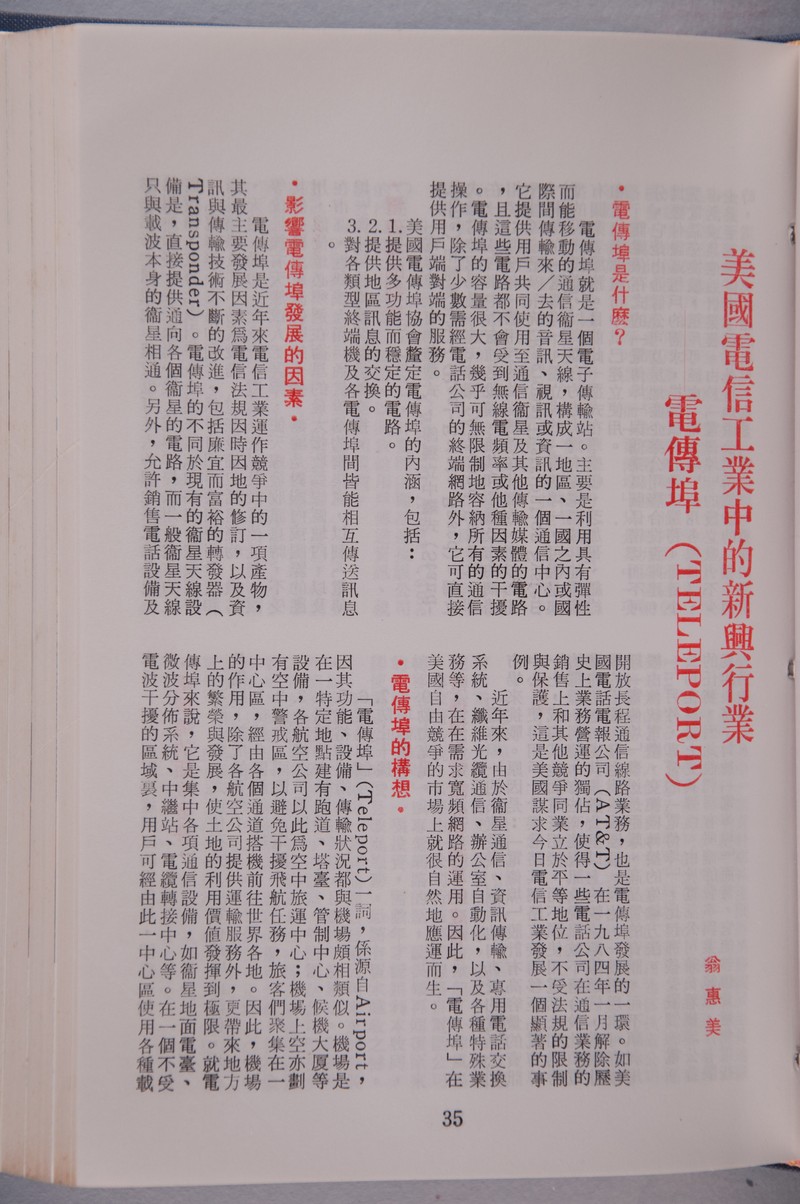 美國電信工業中的新興行業
電傳埠（TELEPORT）
翁惠美
•電傳埠是什麼？
電傳埠就是一個電子傳輸站。主要是利用具有彈性
而能移動的通信衞星天線，構成一地區、一國之內或國
際間傳輸來／去的音訊、視訊或資訊的一個通信中心。
它提供用戶共同使用至通信衞星及其他傳輸媒體的電路
，且這些電路都不會受到無線電頻率或他種因素的干擾
。電傳埠的容量很大，幾乎可無限制地容納所有的通信
操作，除了少數需經電話公司的終端網路外，它可直接
提供用戶端對端的服務。
美國電傳埠協會釐定電傳埠的內涵，包括：
1.提供多功能而穩定的電路。
2.提供地區訊息的交換。
3.對各類型終端機及各電傳埠間皆能相互傳送訊息
。
•影響電傳埠發展的因素•
電傳埠是近年來電信工業運作競爭中的一項產物，
其最主要發展因素爲電信法規因時因地的修訂，以及資
訊與傳輸技術不斷的改進，包括廉宜而富裕的轉發器（
Transponder）。電傳埠的不同於現有的衞星天線設
備是，直接提供通向各個衞星的電路，而一般衞星天線
只與載波本身的衞星相通。另外，允許銷售電話設備及
開放長程通信線路業務，也是電傳埠發展的一環。如美
國電話電報公司（AT&T）在一九八四年一月解除歷
史上業務營運的獨佔，使得一些電話公司在通信業務的
銷售上和其他競爭同業立於平等地位，不受法規的限制
與保護，這是美國謀求今日電信工業發展一個顯著的事
例。
近年來，由於衞星通信、資訊傳輸、專用電話交換
系統、纖維光纜通信、辦公室自動化，以及各種特殊業
務等，在在需求寬頻網路的運用。因此，「電傳埠」在
美國自由競爭的市場上就很自然地應運而生。
•電傳埠的構想•
「電傳埠」（Teleport）一詞，係源自Airport，
因其功能、設備、傳輸狀況都與機場頗相類似。機場是
在一特定地點建有跑道、塔臺、管制中心、候機大厦等
設備，各航空公司以此爲空中旅運中心；機場上空亦劃
有空中警戒區，以避免干擾飛航任務，旅客們聚集在一
中心區，經由各個通道搭機前往世界各地。因此，機場
的作用，除了各航空公司提供運輸服務外，更帶來地方
上的繁榮與發展，使土地的利用價值發揮到極限。就電
傳埠來說，它是集中各項通信設備，如衞星地面電臺、
微波分佈系統、中繼站、電纜轉接中心等。在一個不受
電波干擾的區域裏，用戶可經由此一中心區使用各種載
35